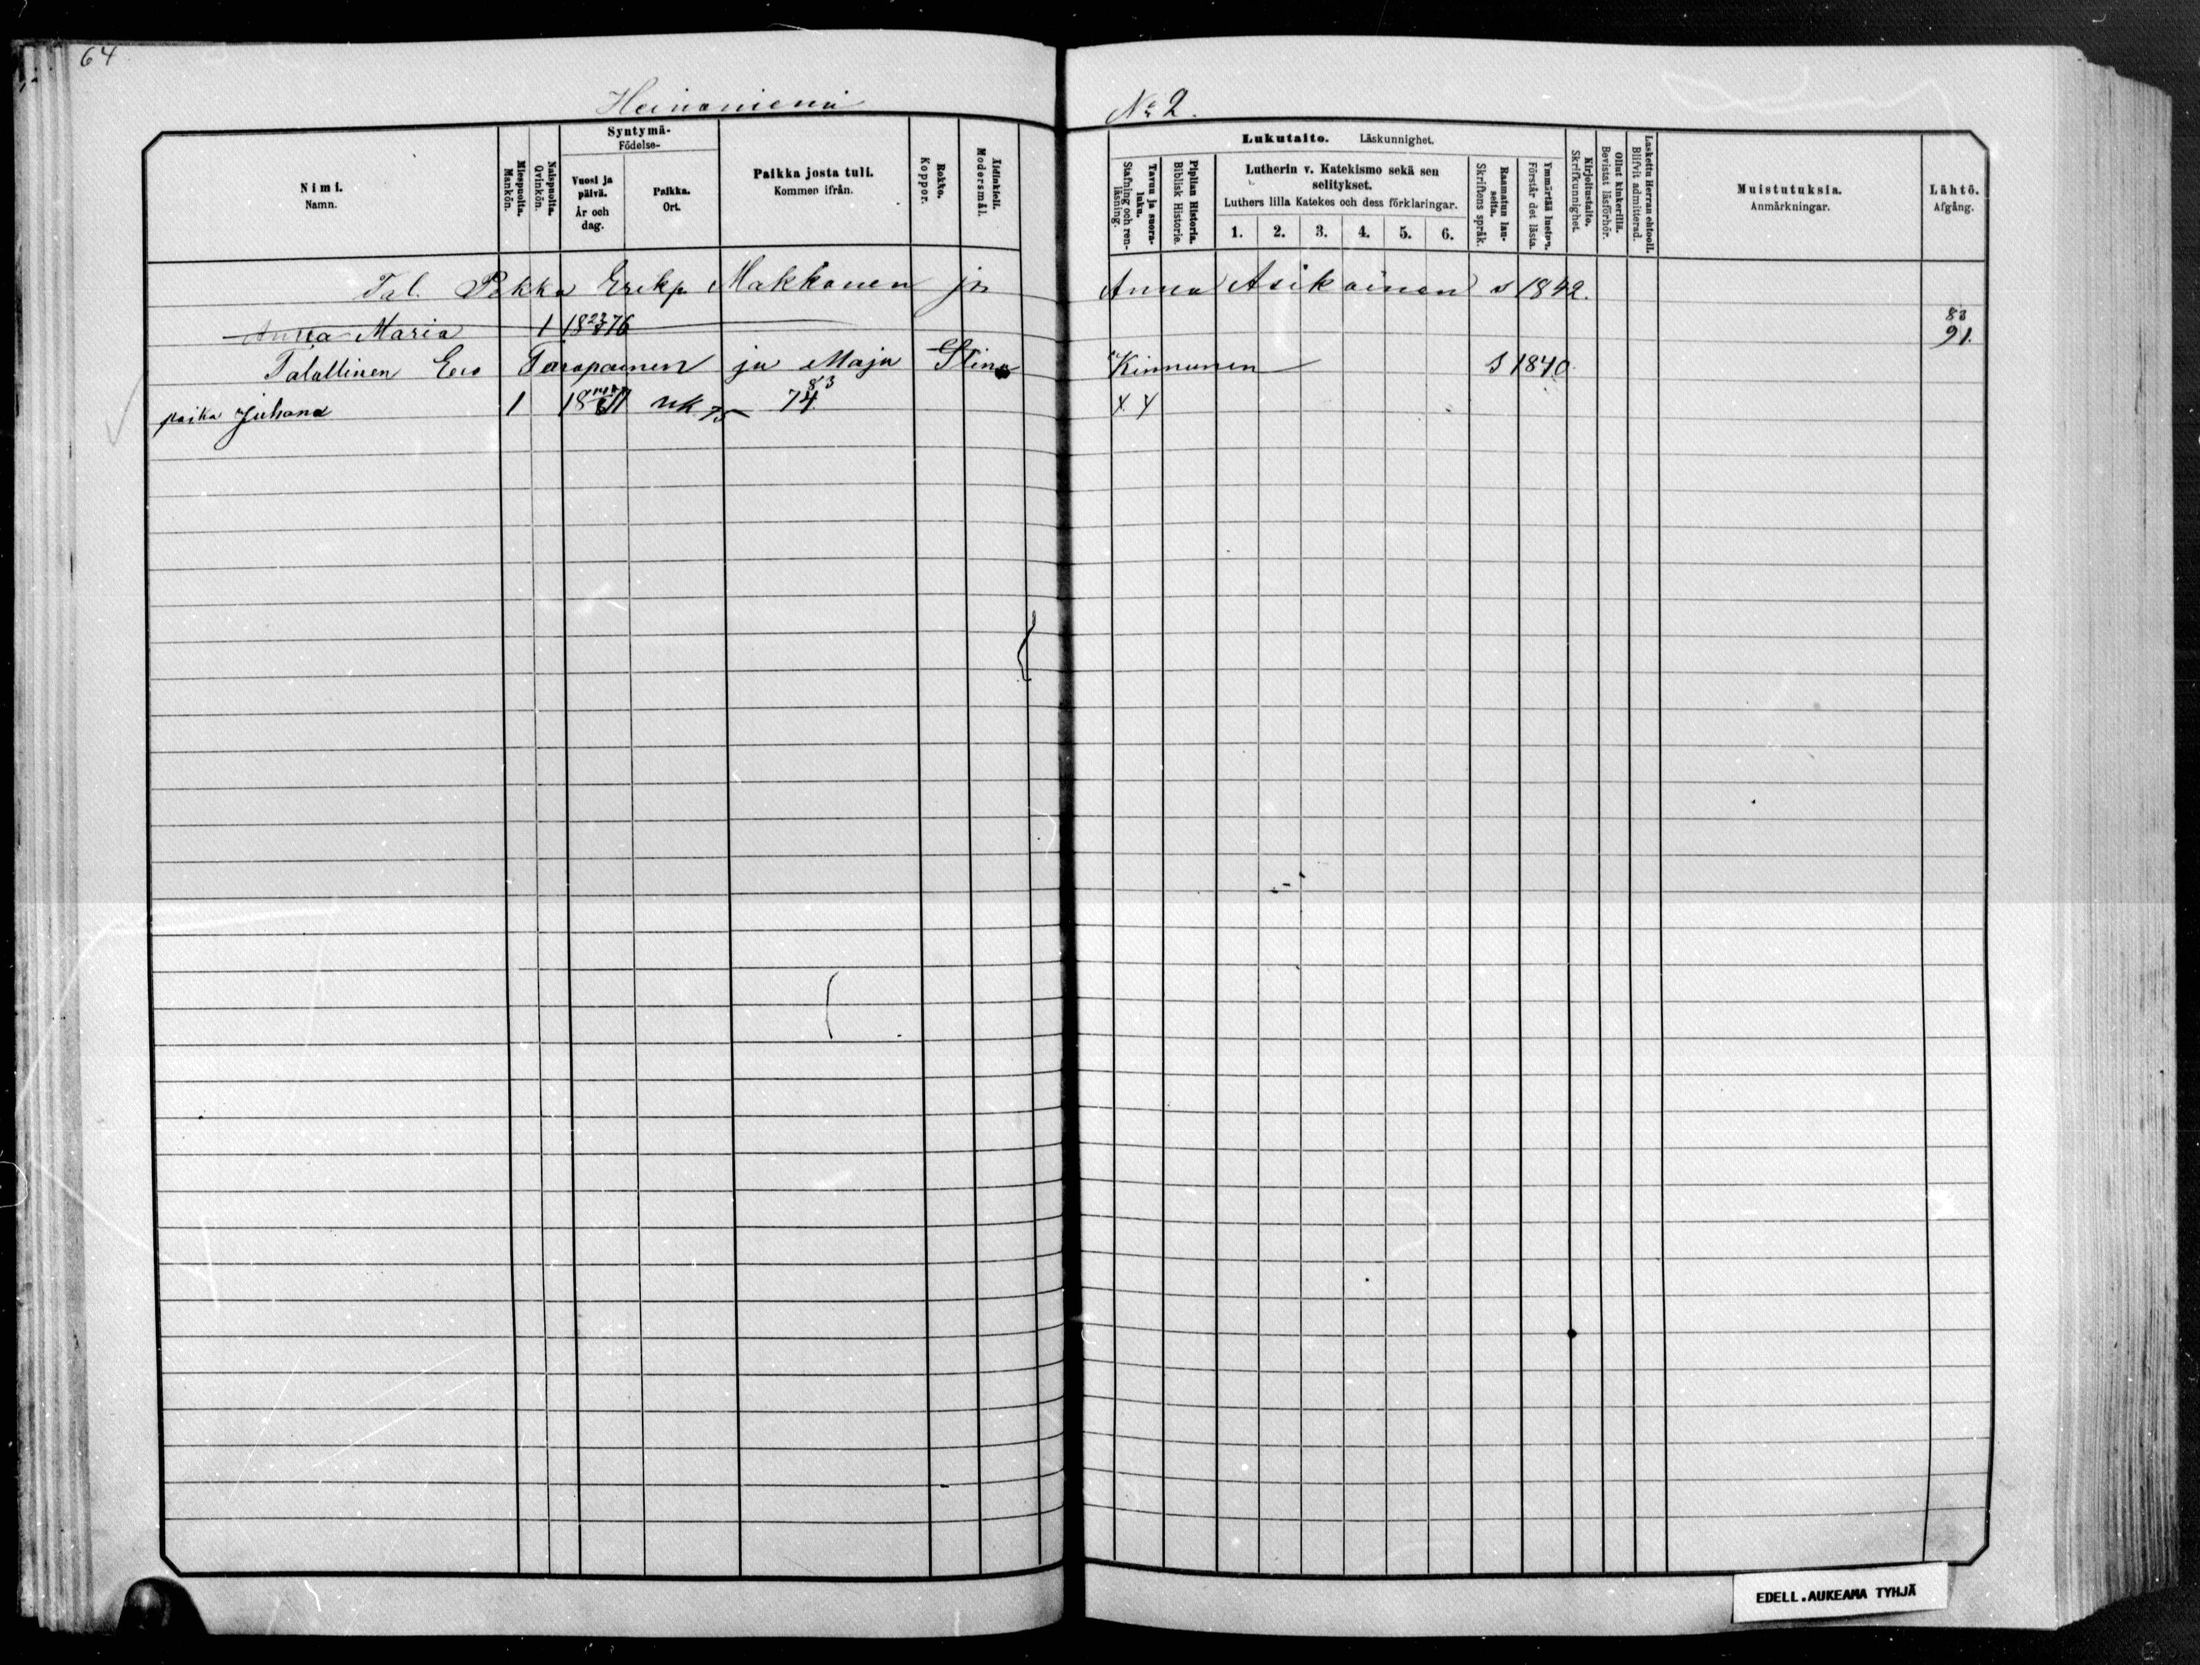 64
Heinoniemi
No 2.
Nimi.
Namn.
Miespuolta.
Mankön.
Naispuolta.
Qvinkön.
Syntymä-
Födelse-
Vuosi ja
päivä.
År och
dag.
Paikka.
Ort.
Paikka josta tuli.
Kommen ifrån.
Rokko.
Koppor.
Äidinkieli.
Modersmål.
Lukutaito. Läskunnighet.
Tavuu ja suora-
luku.
Stafning och ren-
läsning.
Piplian Historia.
Biblisk Historie.
Lutherin v. Katekismo sekä sen
selitykset.
Luthers lilla Katekes och dess förklaringar.
1. 2. 3. 4. 5. 6.
Raamatun lau-
seita.
Skriftens språk.
Ymmärtää luetun.
Förstår det lästa.
Kirjoitustaito.
Skrifkunnighet.
Ollut kinkerillä.
Bevistat läsförhör.
Laskettu Herran ehtooll.
Blifvit admitterad.
Muistutuksia.
Anmärkningar.
Lähtö.
Afgång.
Tal. Pekka Erikp Makkonen ja Anna Asikainen s 1842.
Anna Maria 1 18 76 83
91.
Talallinen Ero Taropainen ja Maja Stina Kinnunen s 1840
poika Juhana 1 18 71 nk 74 83 x x
EDELL.AUKEAMA TYHJÄ